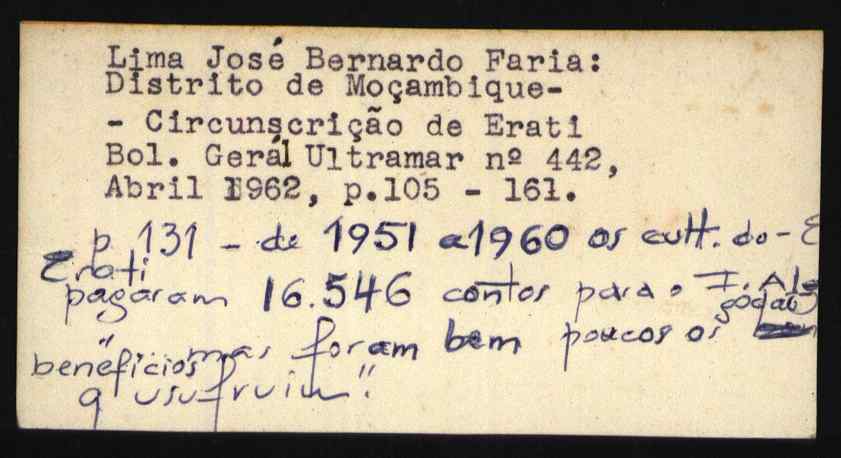 Lima José Bernardo Faria:
Distrito de Moçambique-
- Circunscrição de Erati
Bol. Gerál Ultramar nº 442,
Abril 1962, p.105 - 161.
p 131 - de 1951 a 1960 os cult. do - E
Erati
pagaram 16.546 contos para o I. Al
godão
"mas foram bem poucos os
benefícios
q usufruiu".